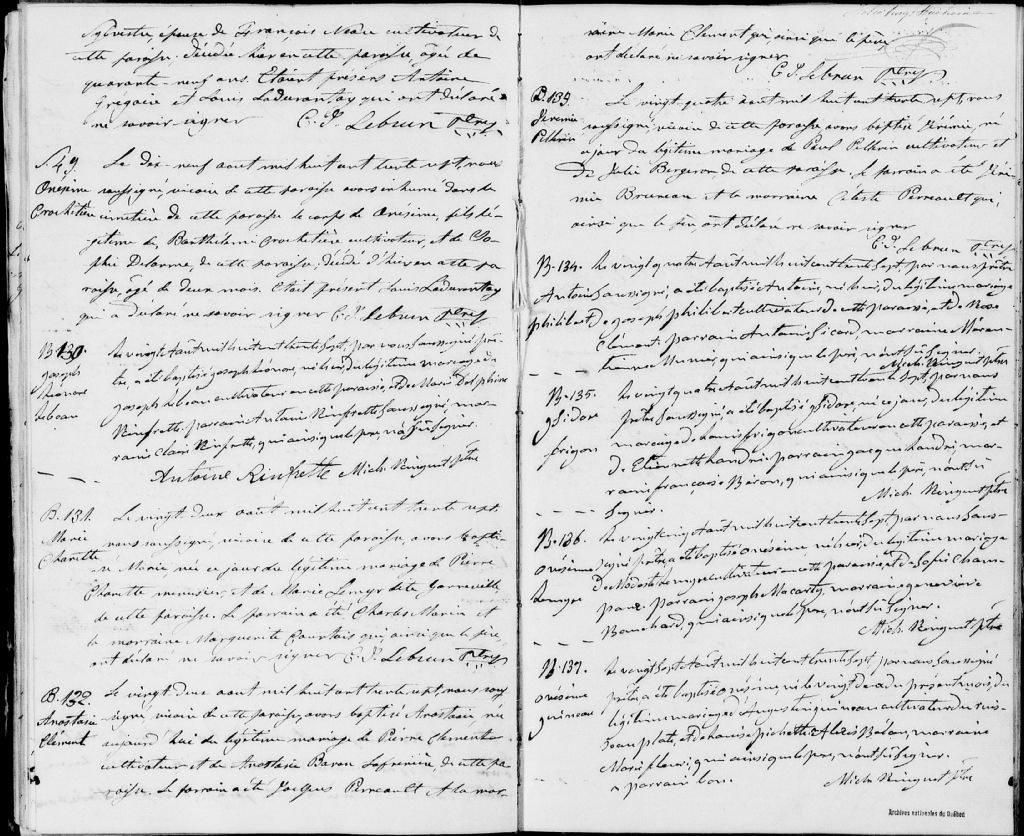 Sylvestre, épouse de François Nadu cultivateur de
cette paroisse, décédée hier en cette paroisse, âgé de
quarante-neuf ans. Etaient présens Antoine
Gregoire et Louis Ladurantay qui ont déclaré
ne savoir signer C. J. Lebrun Ptre
S. 49.
Onésime
Crochetière
Le dix-neuf aout mil huit cent trente sept, nous
soussigné, vicaire de cette paroisse avons inhumé dans le
cimetière de cette paroisse le corps de Onésime, fils lé-
gitime de Barthélemi Crochetière cultivateur, et de So-
phie Delorme, de cette paroisse, décédé d'hier en cette pa
roisse, âgé de deux mois. Etait présent, Louis Ladurantay
qui a déclaré ne savoir signer C. J. Lebrun Ptre
B. 130.
Joseph
Leonore
Lebeau
Le vingt aout mil huit cent trente sept, par nous soussigné prê-
tre, a été baptisé Joseph né hier, du légitime mariage de
Joseph Lebeau cultivateur en cette paroisse, et de Marie Delphine
Rinfrette, parrain Antoine Rinfrette soussigné, mar-
raine Claire Rinfrette, qui ainsi que le père, n'a su signer.
Antoine Rinfrette Mich. Ringuet ptre
B. 131.
Marie
Charette
Le vingt deux aout mil huit cent trente sept
nous soussigné, vicaire de cette paroisse, avons bapti-
sé Marie, née ce jour du légitime mariage de Pierre
Charette menuisier, et de Marie Lemyre dite Gonneville
de cette paroisse. Le parrain a été Charles Marin et
la marraine Marguerite Courtois qui, ainsi que le père,
ont déclaré ne savoir signer C. J. Lebrun Ptre
B. 132.
Anastasie
Clément
Le vingt deux aout mil huit cent trente sept, nous sous
signé, vicaire de cette paroisse, avons baptisé Anastasie, née
aujourd'hui du légitime mariage de Pierre Clement
cultivateur et de Anastasie Baron Lafreniere, de cette pa
roisse. Le parrain a été Jacques Perreault et la mar-
raine Marie Clement qui, ainsi que le père
ont déclaré ne savoir signer
C. J. Lebrun Ptre
B. 133.
Jérémie
Pellerin
Le vingt quatre aout mil huit cent trente sept, nous
soussigné, vicaire de cette paroisse avons baptisé Jérémie, né
ce jour du légitime mariage de Paul Pellerin cultivateur et
De Julie Bergeron de cette paroisse. Le parrain a été Jéré-
mie Bruneau et la marraine Celeste Perreault qui,
ainsi que le père, ont déclaré ne savoir signer
C. J. Lebrun Ptre
B. 134.
Antoine
philibert
Le vingt quatre aout mil huit cent trente sept, par nous prêtre
soussigné, a été baptisé Antoine, né hier, du légitime mariage
De Joseph philibert cultivateur de cette paroisse, et de Rose
Clément, parrain Antoine Sicard, marraine
qui ainsi que le père, n'ont su signer.
Mich. Ringuet ptre
B. 135.
Isidore
frigon
Le vingt quatre aout mil huit cent trente sept, par nous
prêtre soussigné, a été baptisé Isidore, né ce jour, du légitime
mariage de Louis frigon cultivateur en cette paroisse, et
D'Elizabeth Landri, parrain Jacques Landri, mar-
raine françoise Baron, qui ainsi que le père, n'ont su
signer.
Mich. Ringuet ptre
B. 136.
onésime
Lemyre
Le vingt cinq aout mil huit cent trente sept par nous sous-
signé prêtre, a été baptisé onésime né hier, du légitime mariage
De Modeste Lemyre cultivateur en cette paroisse, et de Sophie Cham-
pous, parrain Joseph Macarty, marraine geneviève
Bouchard, qui ainsi que le père, n'ont su signer.
Mich. Ringuet ptre
B. 137.
onésime
juineau
Le vingt sept aout mil huit cent trente sept, par nous soussigné
prêtre, a été baptisé onésime, né le vingt deux du présent mois, du
légitime mariage d'Augustin juineau cultivateur du ruis-
seau plate, et de Louise pichette. Alexis Belan, marraine
Marie fleuri, qui ainsi que le père, n'ont su signer.
^ parrain bon.
Mich. Ringuet ptre
Archives nationales du Québec